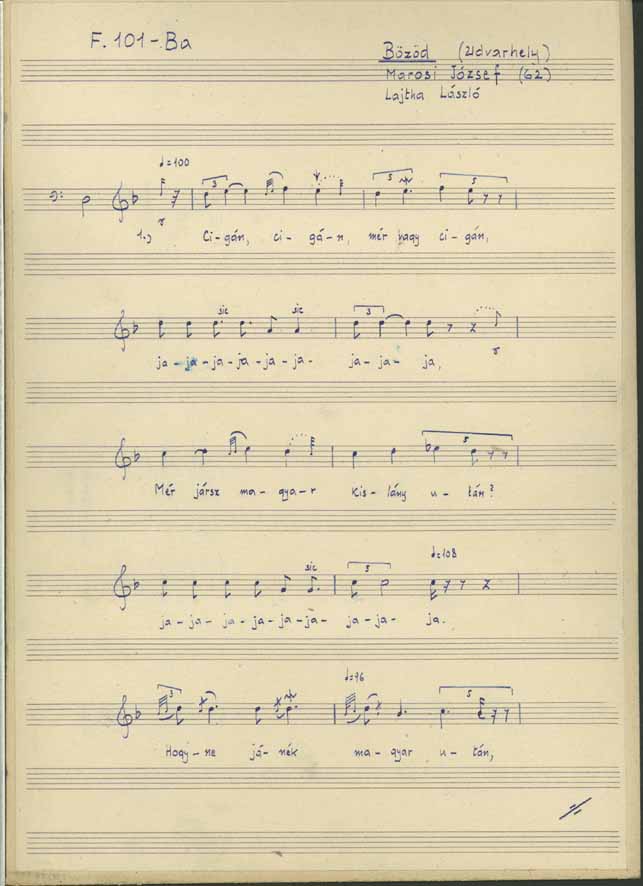 F. 101 - Ba
Böződ (Udvarhely)
Marosi József (62)
Lajtha László
♩=100
3
5
1.) Ci-gán, ci-gá-n, mér vagy ci-gán,
sic sic
3
ja-ja-ja-ja-ja-ja- ja-ja- ja,
5
Mér jársz ma-gya-r kis-lány u-tán?
♩=108
sic
3
ja-ja-ja-ja-ja-ja- ja-ja- ja.
♩=96
3
5
Hogy-ne já-nék ma-gyar u-tán,